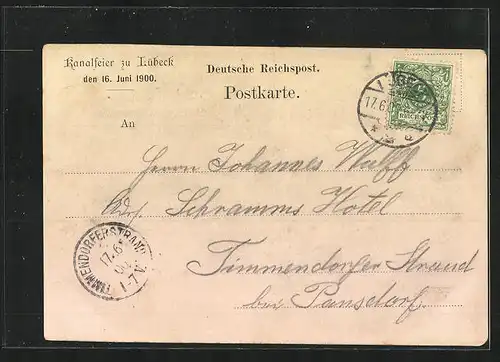 Kanalfeier zu Lübeck
den 16. Juni 1900.
Deutsche Reichspost.
Postkarte.
17.6.
An
Herrn Johannes Wulff
Adr. Schramms Hotel
Timmendorfer Strand
bei Pansdorf.
TIMMENDORFERSTRAND
17.6
1-7V.